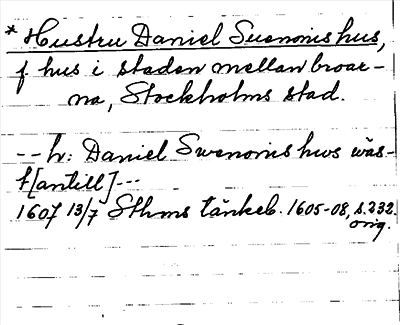 * Hustru Daniel Suenonis hus,
f hus i staden mellan broar-
na, Stockholms stad.
-- h: Daniel Swenonis hws wäs-
t[antill]---
1607 13/7 Sthms tänkeb. 1605-08, s. 232.
orig.